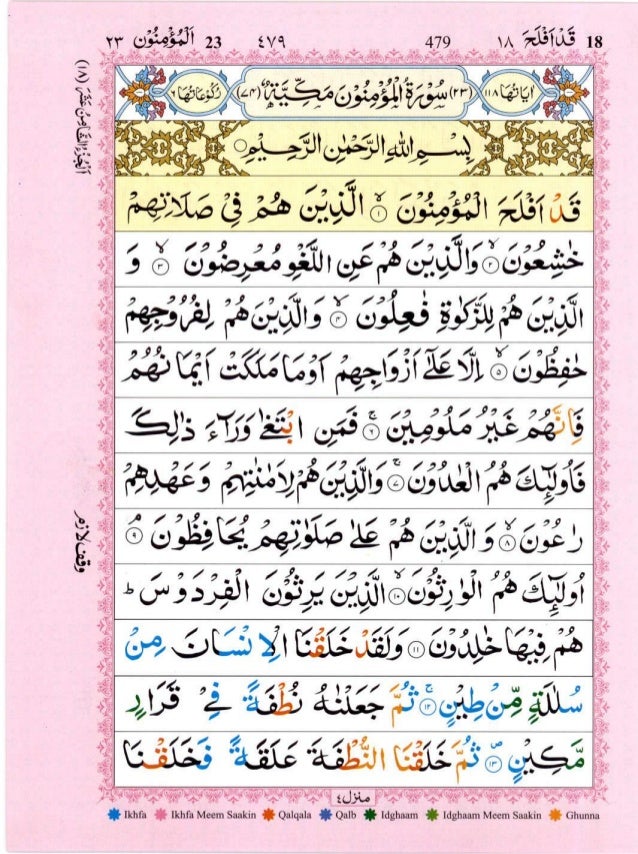 ٢٣ اَلْمُؤْمِنُوْن 23 ٤٧٩ 479 ١٨ قَدْ اَفْلَحَ 18
اٰيَاتُهَا ١١٨ (٢٣) سُوْرَةُ الْمُؤْمِنُوْنَ مَكِّيَّةٌ (٧٤) رُكُوْعَاتُهَا ٦
بِسْمِ اللّٰهِ الرَّحْمٰنِ الرَّحِيْمِ
قَدْ اَفْلَحَ الْمُؤْمِنُوْنَ ۙ۱ الَّذِيْنَ هُمْ فِيْ صَلَاتِهِمْ
خٰشِعُوْنَ ۙ۲ وَالَّذِيْنَ هُمْ عَنِ اللَّغْوِ مُعْرِضُوْنَ ۙ۳ وَ
الَّذِيْنَ هُمْ لِلزَّكٰوةِ فٰعِلُوْنَ ۙ۴ وَالَّذِيْنَ هُمْ لِفُرُوْجِهِمْ
حٰفِظُوْنَ ۙ۵ اِلَّا عَلٰٓى اَزْوَاجِهِمْ اَوْ مَا مَلَكَتْ اَيْمَانُهُمْ
فَاِنَّهُمْ غَيْرُ مَلُوْمِيْنَ ۚ۶ فَمَنِ ابْتَغٰى وَرَآءَ ذٰلِكَ
فَاُولٰٓئِكَ هُمُ الْعٰدُوْنَ ۚ۷ وَالَّذِيْنَ هُمْ لِاَمٰنٰتِهِمْ وَعَهْدِهِمْ
رٰعُوْنَ ۙ۸ وَالَّذِيْنَ هُمْ عَلٰى صَلَوٰتِهِمْ يُحَافِظُوْنَ ۘ۹
اُولٰٓئِكَ هُمُ الْوٰرِثُوْنَ ۙ۱۰ الَّذِيْنَ يَرِثُوْنَ الْفِرْدَوْسَ ؕ
هُمْ فِيْهَا خٰلِدُوْنَ ۱۱ وَلَقَدْ خَلَقْنَا الْاِنْسَانَ مِنْ
سُلٰلَةٍ مِّنْ طِيْنٍ ۚ۱۲ ثُمَّ جَعَلْنٰهُ نُطْفَةً فِيْ قَرَارٍ
مَّكِيْنٍ ۪۱۳ ثُمَّ خَلَقْنَا النُّطْفَةَ عَلَقَةً فَخَلَقْنَا
اَلْجُزْءُ الثَّامِنُ عَشَرَ (١٨)
وقف لازم
منزل ٤
Ikhfa Ikhfa Meem Saakin Qalqala Qalb Idghaam Idghaam Meem Saakin Ghunna